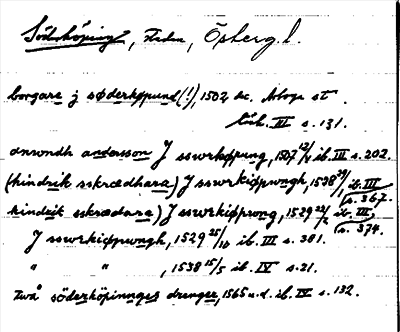 Söderköping, staden, Östergl.
borgare j søderkøpund (!), 1502 dc. Arboga st
tänk. III s. 131.
anwondh andersson J sswrkøpung, 1507 12/2 ib. III s. 202.
(hindrik sskrædhara) J sswrkiøpwngh, 1528 29/1 ib. III s. 367.
hindrik sskrædara) J sswrkiøpwng, 1529 22/2 ib. III s. 374.
J sswrkiøpwngh, 1529 25/10 ib. III s. 381.
" " , 1538 15/5 ib. IV s. 21.
twå söderköpinnges drenger, 1565 u.d. ib. IV s. 132.